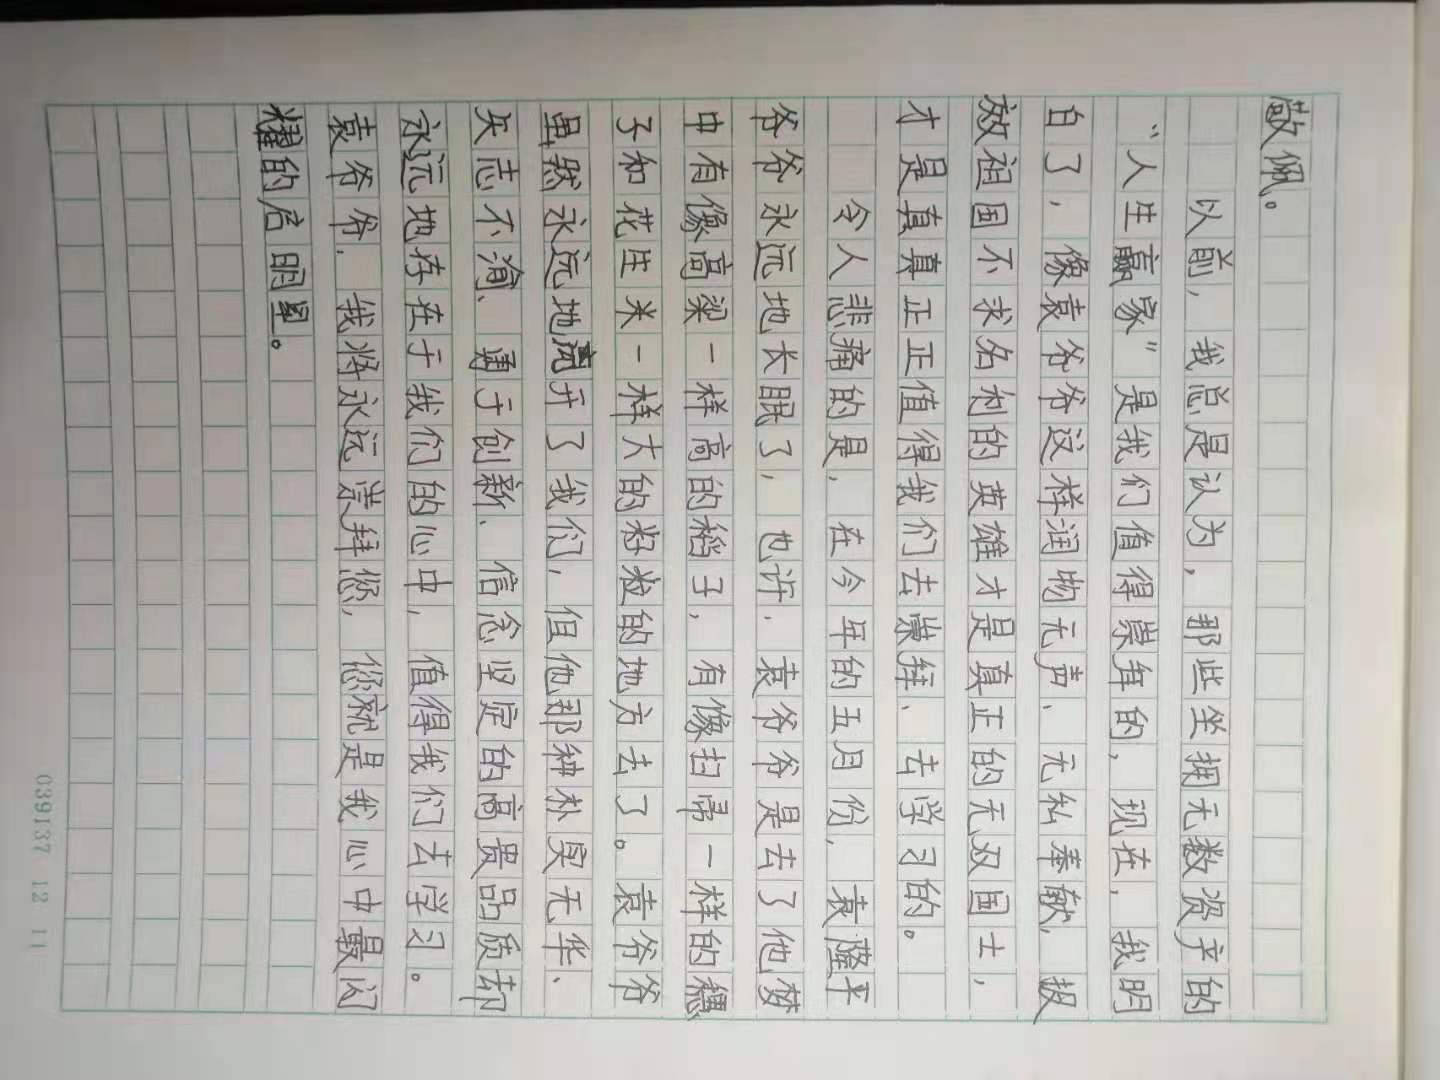 敬佩。
以前，我总是认为，那些坐拥无数资产的
“人生赢家”是我们值得崇拜的，现在，我明
白了，像袁爷爷这样润物无声、无私奉献，报
效祖国不求名利的英雄才是真正的无双国士，
才是真真正正值得我们去崇拜、去学习的。
令人悲痛的是，在今年的五月份，袁隆平
爷爷永远地长眠了，也许，袁爷爷是去了他梦
中有像高梁一样高的稻子，有像扫帚一样的穗
子和花生米一样大的籽粒的地方去了。袁爷爷
虽然永远地离开了我们，但他那种朴实无华、
矢志不渝、勇于创新、信念坚定的高贵品质却
永远地存在于我们的心中，值得我们去学习。
袁爷爷，我将永远崇拜您，您就是我心中最闪
耀的启明星。
039137 12 11